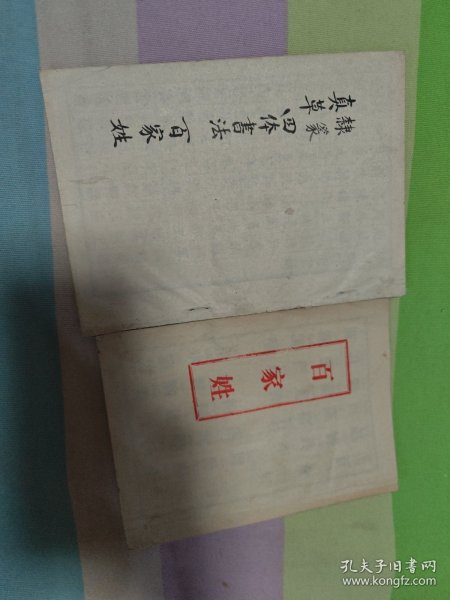 真草
隸篆
四体書法 百家姓
百家姓
孔夫子旧书网
www.kongfz.com